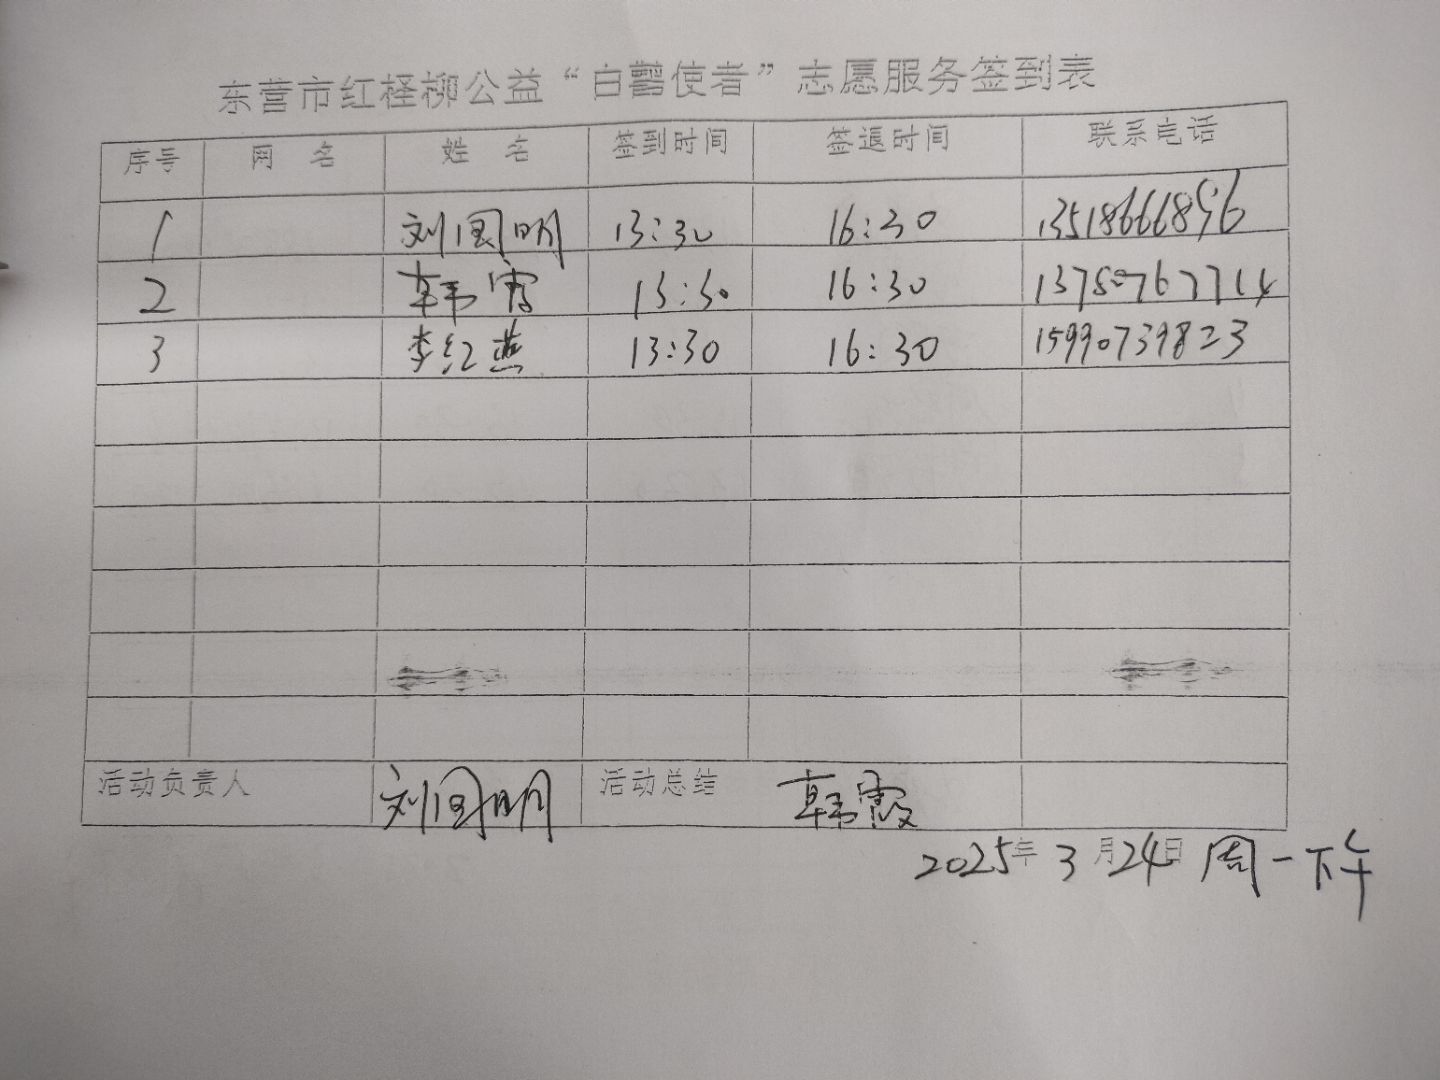 东营市红柽柳公益“白鹳使者”志愿服务签到表
序号 网 名 姓 名 签到时间 签退时间 联系电话
1 刘国明 13:30 16:30 13518666896
2 韩霞 13:30 16:30 13780767714
3 李红燕 13:30 16:30 15990739823
活动负责人 刘国明 活动总结 韩霞
2025年3月24日 周一下午